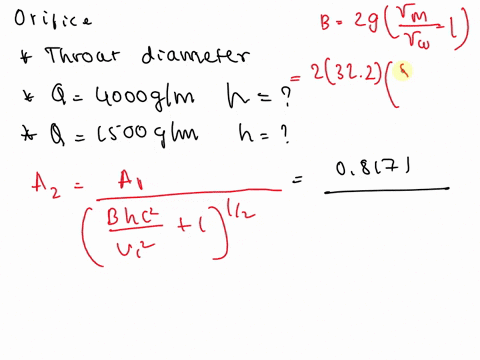 Orifice
* Throat diameter
* Q = 4000 glm h = ?
* Q = 1500 glm h = ?
B = 2g (γm/γω - 1)
= 2(32.2)(
A2 = A1 / (Bhc²/V1² + 1)^1/2 = 0.8171